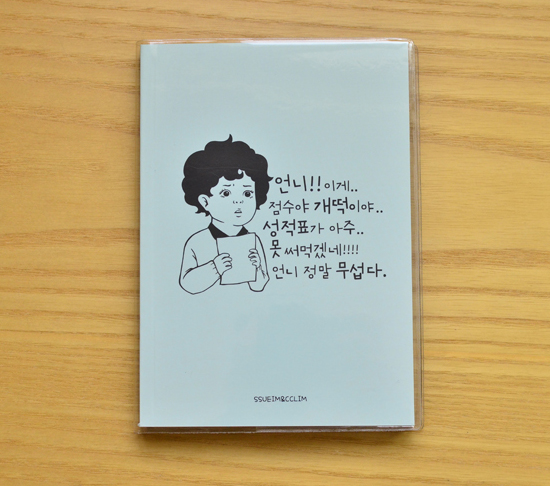 언니!! 이게..
점수야 개떡이야..
성적표가 아주..
못 써먹겠네!!!!
언니 정말 무섭다.
SSUEIM&CCLIM